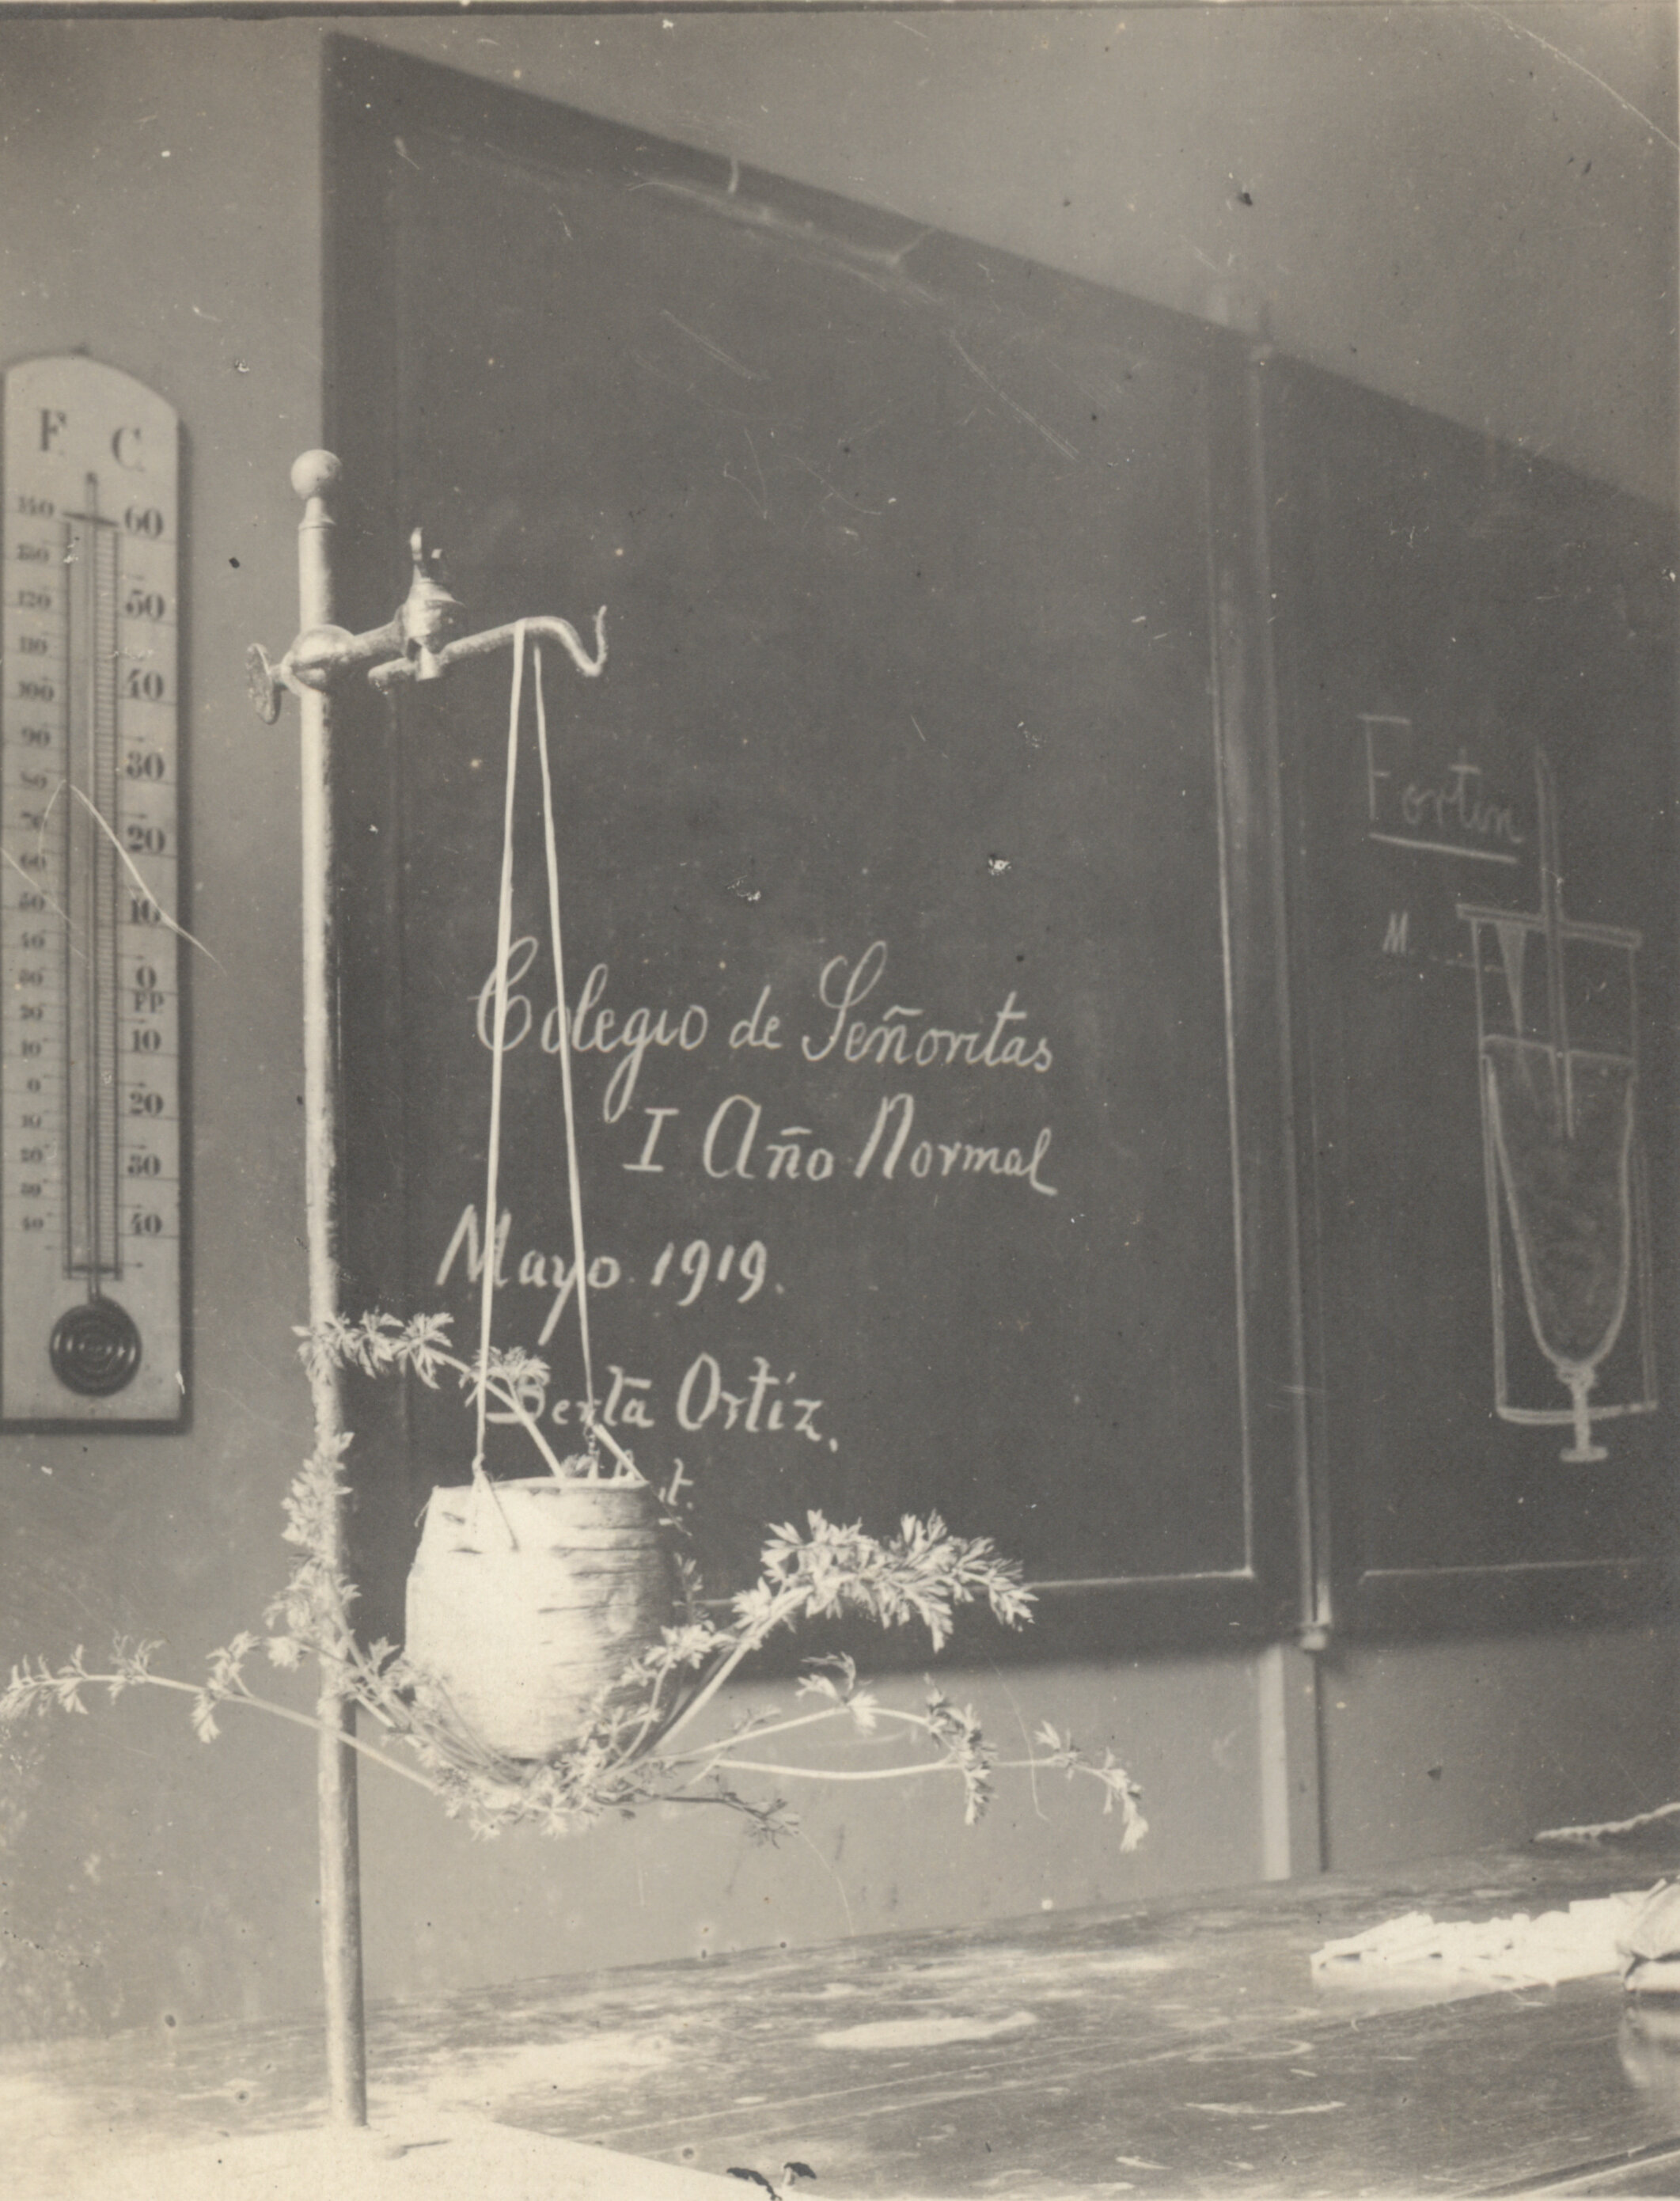 F. C.
140 60
130
120 50
110
100 40
90
80 30
70 20
60
50 10
40
30 0
FP
20
10 10
0
10 20
20 30
30
40 40
Colegio de Señoritas
I Año Normal
Mayo 1919.
Berta Ortíz.
t.
Fortin
M